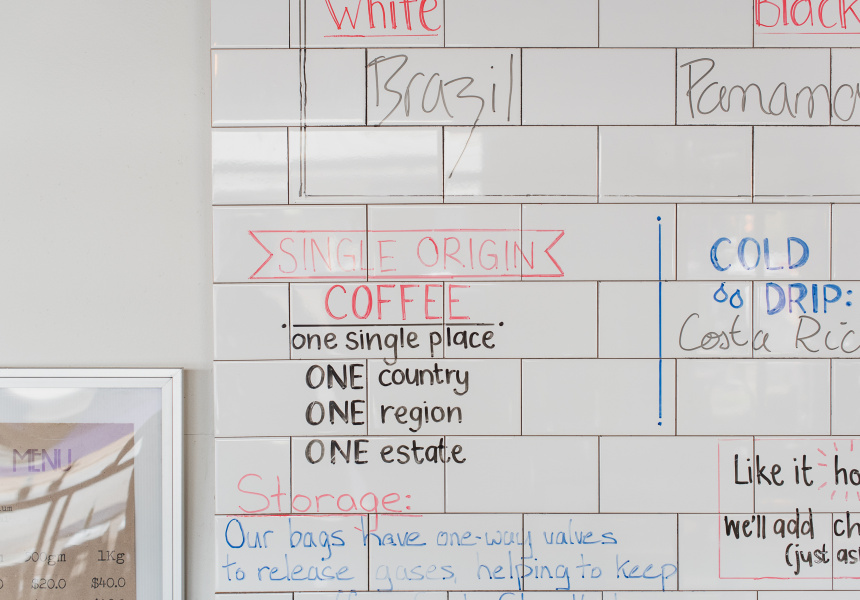 White
Black
Brazil
Panama
SINGLE ORIGIN
COFFEE
one single place
ONE country
ONE region
ONE estate
COLD
DRIP:
Costa Ric
Storage:
Our bags have one-way valves
to release gases, helping to keep
Like it ho
we'll add ch
(just as
MENU
1Kg
$20.0 $40.0